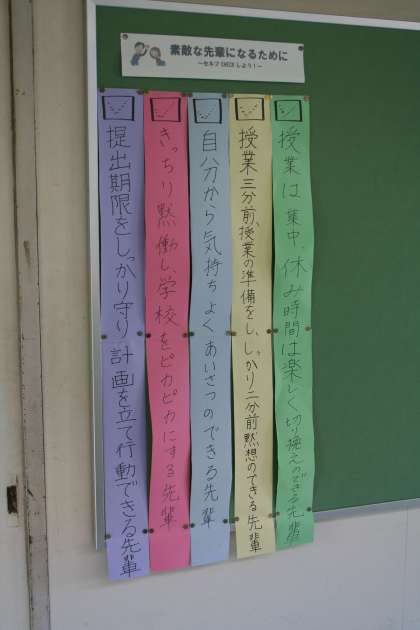 素敵な先輩になるために
～セルフCHECKしよう！～
授業は集中、休み時間は楽しく切り換えのできる先輩
授業三分前、授業の準備をし、しっかり二分前黙想のできる先輩
自分から気持ちよくあいさつのできる先輩
きっちり黙働し、学校をピカピカにする先輩
提出期限をしっかり守り計画を立て行動できる先輩